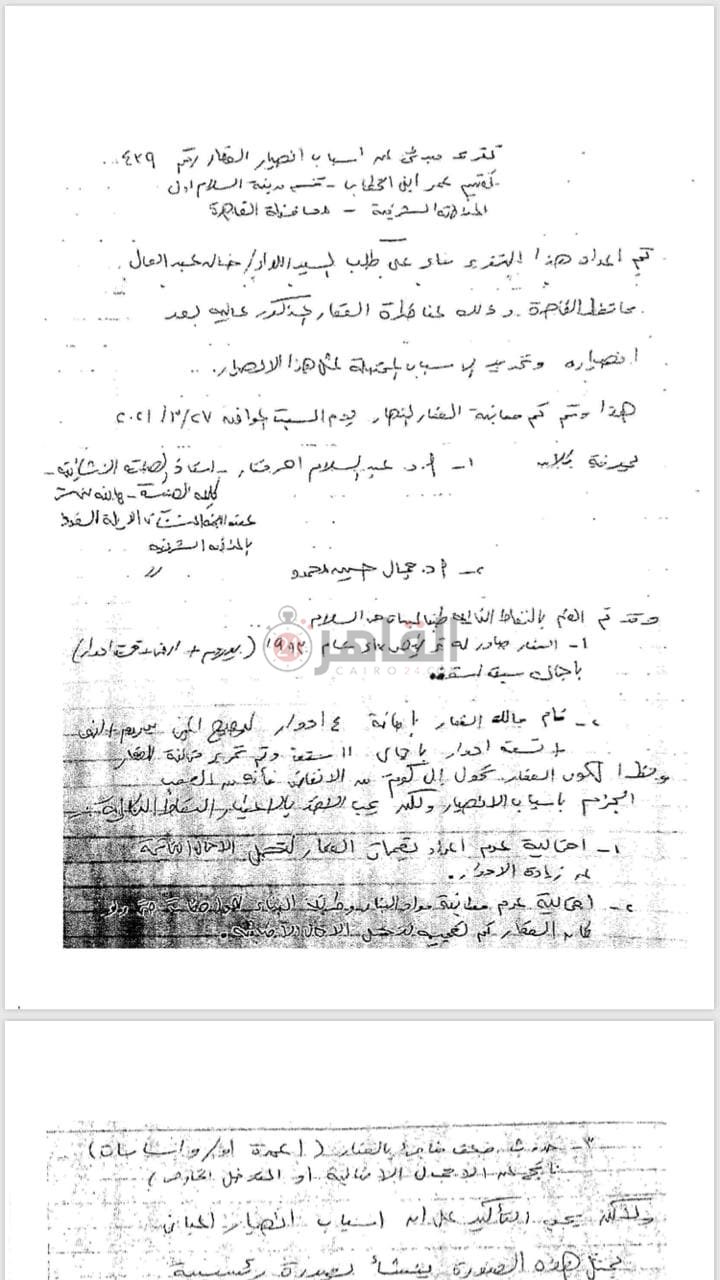 تقرير مبدئى عن اسباب انهيار العقار رقم ٤٣٩
تقسيم عمر ابن الخطاب - قسم مدينة السلام اول
المنطقة الشرقية - محافظة القاهرة
تم اعداد هذا التقرير بناء على طلب السيد اللواء / خالد عبد العال
محافظ القاهرة وذلك لمناظرة العقار المذكور عاليه بعد
انهياره وتحديد الاسباب المحتملة لمثل هذا الانهيار.
هذا وتم معاينة العقار المنهار يوم السبت الموافق ٢٧/٣/٢٠٢١
بمعرفة كلا من ١- أ.د عبد السلام احمد مختار - استاذ الهندسة الانشائية -
كلية الهندسة -
عضو لجنة المنشآت الآيلة للسقوط
بالمنطقة الشرقية
٢- أ.د. جمال حسين محمود //
وقد تم بالنقاط التالية طبقا السلام
١- العقار صادر له ترخيص بناء عام ١٩٩٣ (بدروم + ارضى + ادوار)
باجمالى ستة اسقف
القاهرة 24
CAIRO 24
٢- قام مالك العقار باضافة ٤ ادوار ليصبح المبنى بدروم + ارضى
+ تسعة ادوار باجمالى ١١ سقف وتم تحرير للعقار
ونظرا لكون العقار تحول إلى كوم من الانقاض فأنه من الصعب
الجزم باسباب الانهيار ولكن يجب الاخذ بالاعتبار النقاط التالية
١- احتمالية عدم اعداد تصميمات العقار لتحمل الاحمال الناتجة
عن زيادة الادوار.
٢- احتمالية عدم مطابقة مواد البناء وطريقة البناء حتى ولو
كان العقار تم تصميمه لتحمل الاحمال الاضافية.
٣- حدوث ضعف مفاجئ بالعقار (اعمدة او/و اساسات)
ناتج عن الاحمال الاضافية او التدخل الخارجى)
ولذلك يجب التأكيد على ان اسباب انهيار المبانى
بمثل هذه الصورة ينشأ بصورة رئيسية